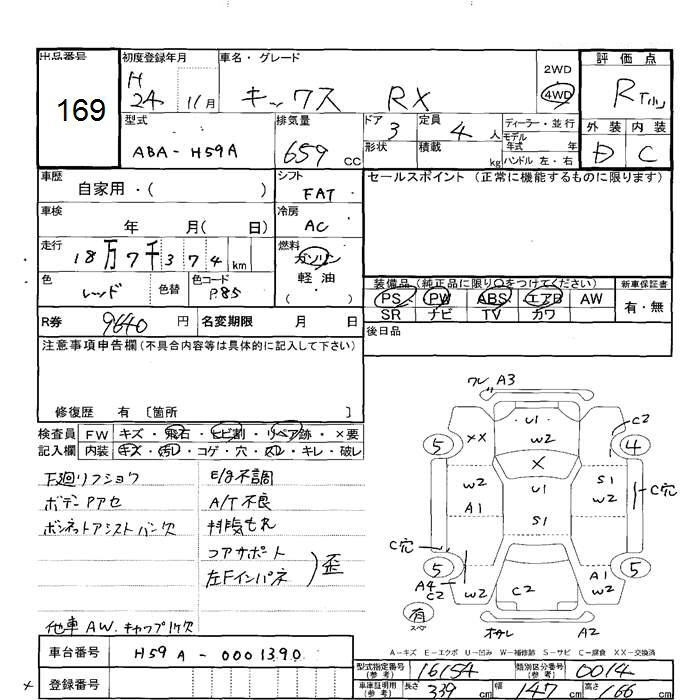 出品番号
169
初度登録年月
H
24 11月
車名・グレード
キックス RX
2WD
4WD
評価点
R T小
外装 内装
D C
型式
ABA-H59A
排気量
659 cc
ドア
3
形状
定員
4 人
積載
kg
ディーラー・並行
モデル
年式 年
ハンドル 左・右
車歴
自家用・( )
シフト
FAT
セールスポイント (正常に機能するものに限ります)
車検
年 月( 日)
冷房
AC
走行
18万7千374km
燃料
ガソリン
軽油
( )
色
レッド
色替
色コード
P85
装備品(純正品に限り○をつけてください)
PS PW ABS エアB AW
SR ナビ TV カワ
新車保証書
有・無
R券 9640円
名変期限 月 日
後日品
注意事項申告欄(不具合内容等は具体的に記入して下さい)
修復歴 有 〔箇所 〕
検査員 FW キズ・飛石・ヒビ割・リペア跡・×要
記入欄 内装 キズ・汚レ・コゲ・穴・スレ・キレ・破レ
下廻リフショク
ボデーPアセ
ボンネットアシストバン欠
E/g不調
A/T不良
排気もれ
コアサポート
左Fインパネ
歪
他車AW.キャップ1ケ欠
車台番号 H59A-0001390
登録番号
ワレ A3
U1
W2
XX
C2
5
4
X
W2
A1
U1
S1
S1
W2
C穴
C穴
5
5
A4
C2
W2
C2
A1
W2
有
スペ
オサレ A2
A-キズ E-エクボ U-凹み W-補修跡 S-サビ C-腐食 XX-交換済
型式指定番号
(参考)
16154
類別区分番号
(参考)
0014
車庫証明用
(参考)
長さ 339 cm 幅 147 cm 高さ 166 cm